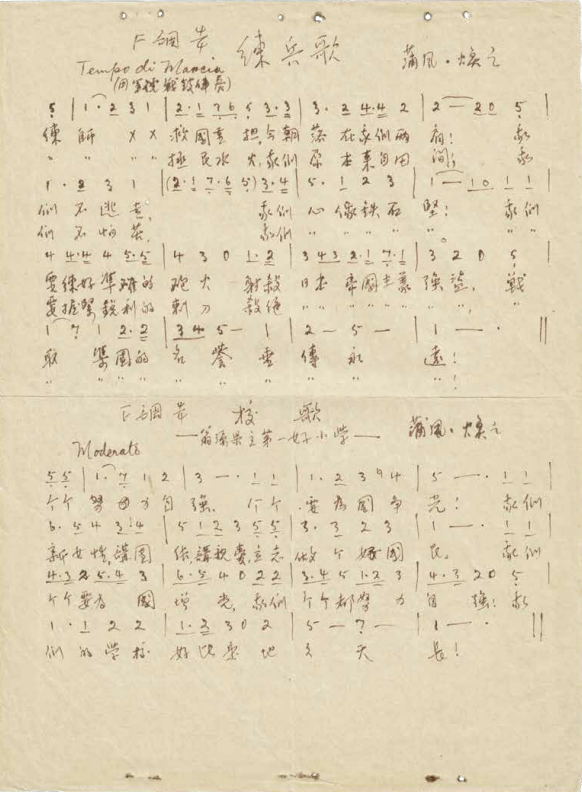 F調 练兵歌 蒲风·焕之
Tempo di Marcia
5 | 1·2 3 1 | 2·1 7 6 5 3·3 | 3·2 4·4 2 | 2 — 2 0 5
練 師 × × 救国重担今朝落在我們两肩! 我
〃 〃 〃 〃 拯民水火,我們原本来自田间; 我
1·2 3 1 | (2·1 7·6 5) 3·4 | 5·1 2 3 | 1 — 1 0 1 1
們不逃走, 我們心像铁石堅! 我們
們不怕苦, 我們 〃 〃 〃 〃 〃 我們
4 4·4 4 5·5 | 4 3 0 1·2 | 3 4 3 2·1 7·1 | 3 2 0 5
要練好準确的砲火 射殺日本帝國主義强盗, 戰
要握緊銳利的刺刀 殺绝 〃 〃 〃 〃 〃 〃 〃 〃
1 7 1 2·2 | 3 4 5 — 1 | 2 — 5 — | 1 — · ||
取 集團的名誉 傳永遠!
〃 〃 〃 〃 〃 〃 〃 〃 〃!
F調 校歌 蒲风·焕之
—翁源县立第一女小学—
Moderato
5 5 | 1·7 1 2 | 3 — · 1 1 | 1·2 3 4 | 5 — · 1 1
个个努力自强, 个个要为国争光! 我們
6·5 4 3·4 | 5 1 2 3 5 5 | 3·3 2 3 | 1 — · 1 1
新女性,講团结,講親爱,立志做个好國民。 我們
4·3 2 5·4 3 | 6·5 4 0 2 2 | 3·4 5 1·2 3 | 4·3 2 0 5
个个要为國增光,我們个个都努力自强! 我
1·1 2 2 | 1·2 3 0 2 | 5 — 7 — | 1 — · ||
們的学校好比是地久天長!